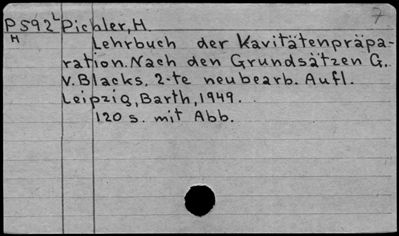 7
P592L Pichler, H.
H
Lehrbuch der Kavitätenpräpa-
ration. Nach den Grundsätzen G.
V. Blacks. 2-te neubearb. Aufl.
Leipzig, Barth, 1949.
120 s. mit Abb.